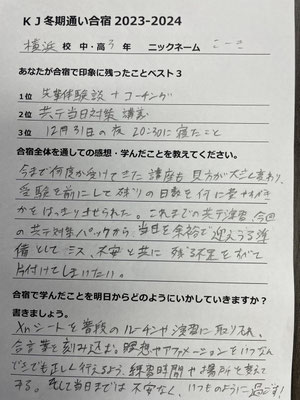 KJ冬期通い合宿 2023-2024
横浜 校 中・高 3 年 ニックネーム こーき
あなたが合宿で印象に残ったことベスト3
1位 先輩体験談+コーチング
2位 共テ当日対策講義
3位 12月31日の夜 20:30に寝たこと
合宿全体を通しての感想・学んだことを教えてください。
今まで何度か受けてきた講座も見方が大きく変わり、
受験を前にして残りの日数を何に費やすべき
かをはっきりさせられた。これまでの共テ演習、今回
の共テ対策パックから、当日を余裕で迎えうる準
備としてミス、不安と共に残る不足をすべて
片付けてしまいたい。
合宿で学んだことを明日からどのようにいかしていきますか?
書きましょう。
シートを普段のルーチンや演習に取り入れ、
合言葉を刻み込む。瞑想やアファメーションをいつなん
どきでも正しく行えるよう練習時間や場所を考えて
する。そして当日までは不安なく、いつものように過ごす!